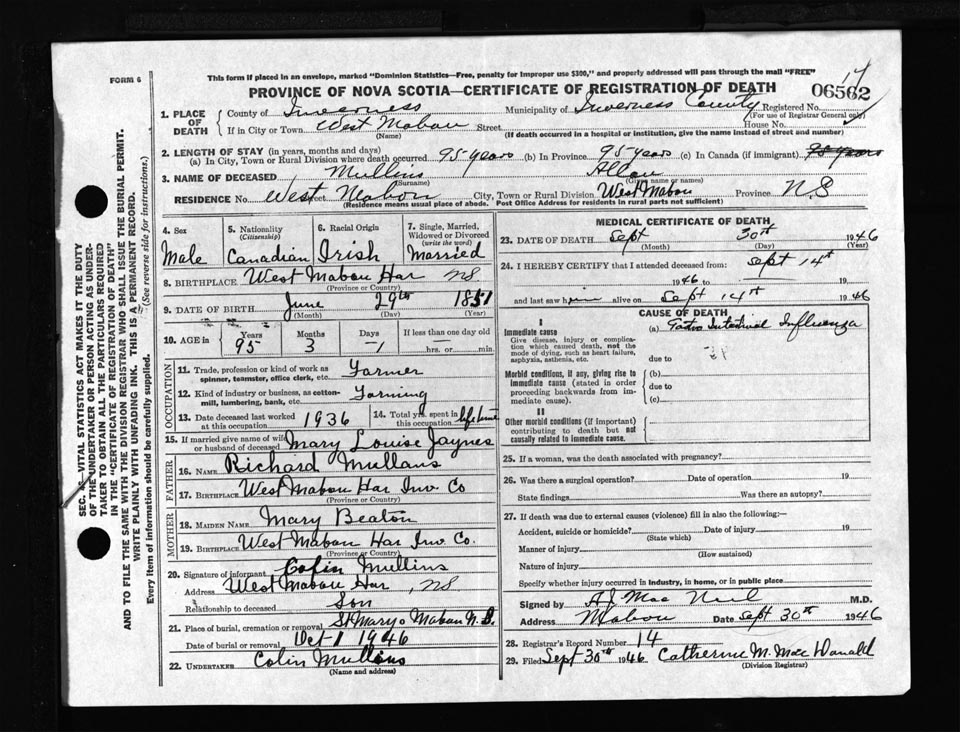 FORM 6
This form if placed in an envelope, marked "Dominion Statistics—Free, penalty for improper use $300," and properly addressed will pass through the mail "FREE"
PROVINCE OF NOVA SCOTIA—CERTIFICATE OF REGISTRATION OF DEATH
17
06562
1. PLACE OF DEATH County of Inverness Municipality of Inverness County Registered No.
(For use of Registrar General only)
If in City or Town West Mabou Street House No.
(Name) (If death occurred in a hospital or institution, give the name instead of street and number)
2. LENGTH OF STAY (in years, months and days)
(a) In City, Town or Rural Division where death occurred 95 years (b) In Province 95 years (c) In Canada (if immigrant) 95 years
3. NAME OF DECEASED Mullins Allan
(Surname) (Given name or names)
RESIDENCE No. West Mabou Street City, Town or Rural Division West Mabou Province N.S
(Residence means usual place of abode. Post Office Address for residents in rural parts not sufficient)
4. Sex Male
5. Nationality (Citizenship) Canadian
6. Racial Origin Irish
7. Single, Married, Widowed or Divorced (write the word) Married
8. BIRTHPLACE West Mabou Har NS
(Province or Country)
9. DATE OF BIRTH June 29th 1851
(Month) (Day) (Year)
10. AGE in Years Months Days If less than one day old
95 3 —1 hrs. or min.
OCCUPATION
11. Trade, profession or kind of work as spinner, teamster, office clerk, etc. Farmer
12. Kind of industry or business, as cotton-mill, lumbering, bank, etc. Farming
13. Date deceased last worked at this occupation 1936
14. Total yrs. spent in this occupation lifetime
15. If married give name of wife or husband of deceased Mary Louise Jaynes
FATHER
16. NAME Richard Mullans
17. BIRTHPLACE West Mabou Har Inv Co
(Province or Country)
MOTHER
18. MAIDEN NAME Mary Beaton
19. BIRTHPLACE West Mabou Har Inv. Co.
(Province or Country)
20. Signature of informant Colin Mullins
Address West Mabou Har, NS
Relationship to deceased Son
21. Place of burial, cremation or removal St Marys Mabou N.S.
Date of burial or removal Oct 1 1946
22. UNDERTAKER Colin Mullins
(Name and address)
MEDICAL CERTIFICATE OF DEATH
23. DATE OF DEATH Sept 30th 1946
(Month) (Day) (Year)
24. I HEREBY CERTIFY that I attended deceased from: Sept 14th
1946 to 19
and last saw him alive on Sept 14th 1946
CAUSE OF DEATH
I
Immediate cause (a) Gastro Intestinal Influenza
Give disease, injury or complication which caused death, not the mode of dying, such as heart failure, asphyxia, asthenia, etc.
due to
Morbid conditions, if any, giving rise to immediate cause (stated in order proceeding backwards from immediate cause).
(b)
due to
(c)
II
Other morbid conditions (if important) contributing to death but not causally related to immediate cause.
25. If a woman, was the death associated with pregnancy?
26. Was there a surgical operation? Date of operation 19
State findings Was there an autopsy?
27. If death was due to external causes (violence) fill in also the following:—
Accident, suicide or homicide? Date of injury 19
(State which)
Manner of injury
(How sustained)
Nature of injury
Specify whether injury occurred in industry, in home, or in public place
Signed by AJ Mac Neil M.D.
Address Mabou Date Sept 30th 1946
28. Registrar's Record Number 14
29. Filed Sept 30th 1946 Catherine M. Mac Donald
(Division Registrar)
SEC. VITAL STATISTICS ACT MAKES IT THE DUTY
OF THE UNDERTAKER OR PERSON ACTING AS UNDER-
TAKER TO OBTAIN ALL THE PARTICULARS REQUIRED
IN THE "CERTIFICATE OF REGISTRATION OF DEATH"
AND TO FILE THE SAME WITH THE DIVISION REGISTRAR WHO SHALL ISSUE THE BURIAL PERMIT.
WRITE PLAINLY WITH UNFADING INK. THIS IS A PERMANENT RECORD.
Every item of information should be carefully supplied. (See reverse side for instructions.)